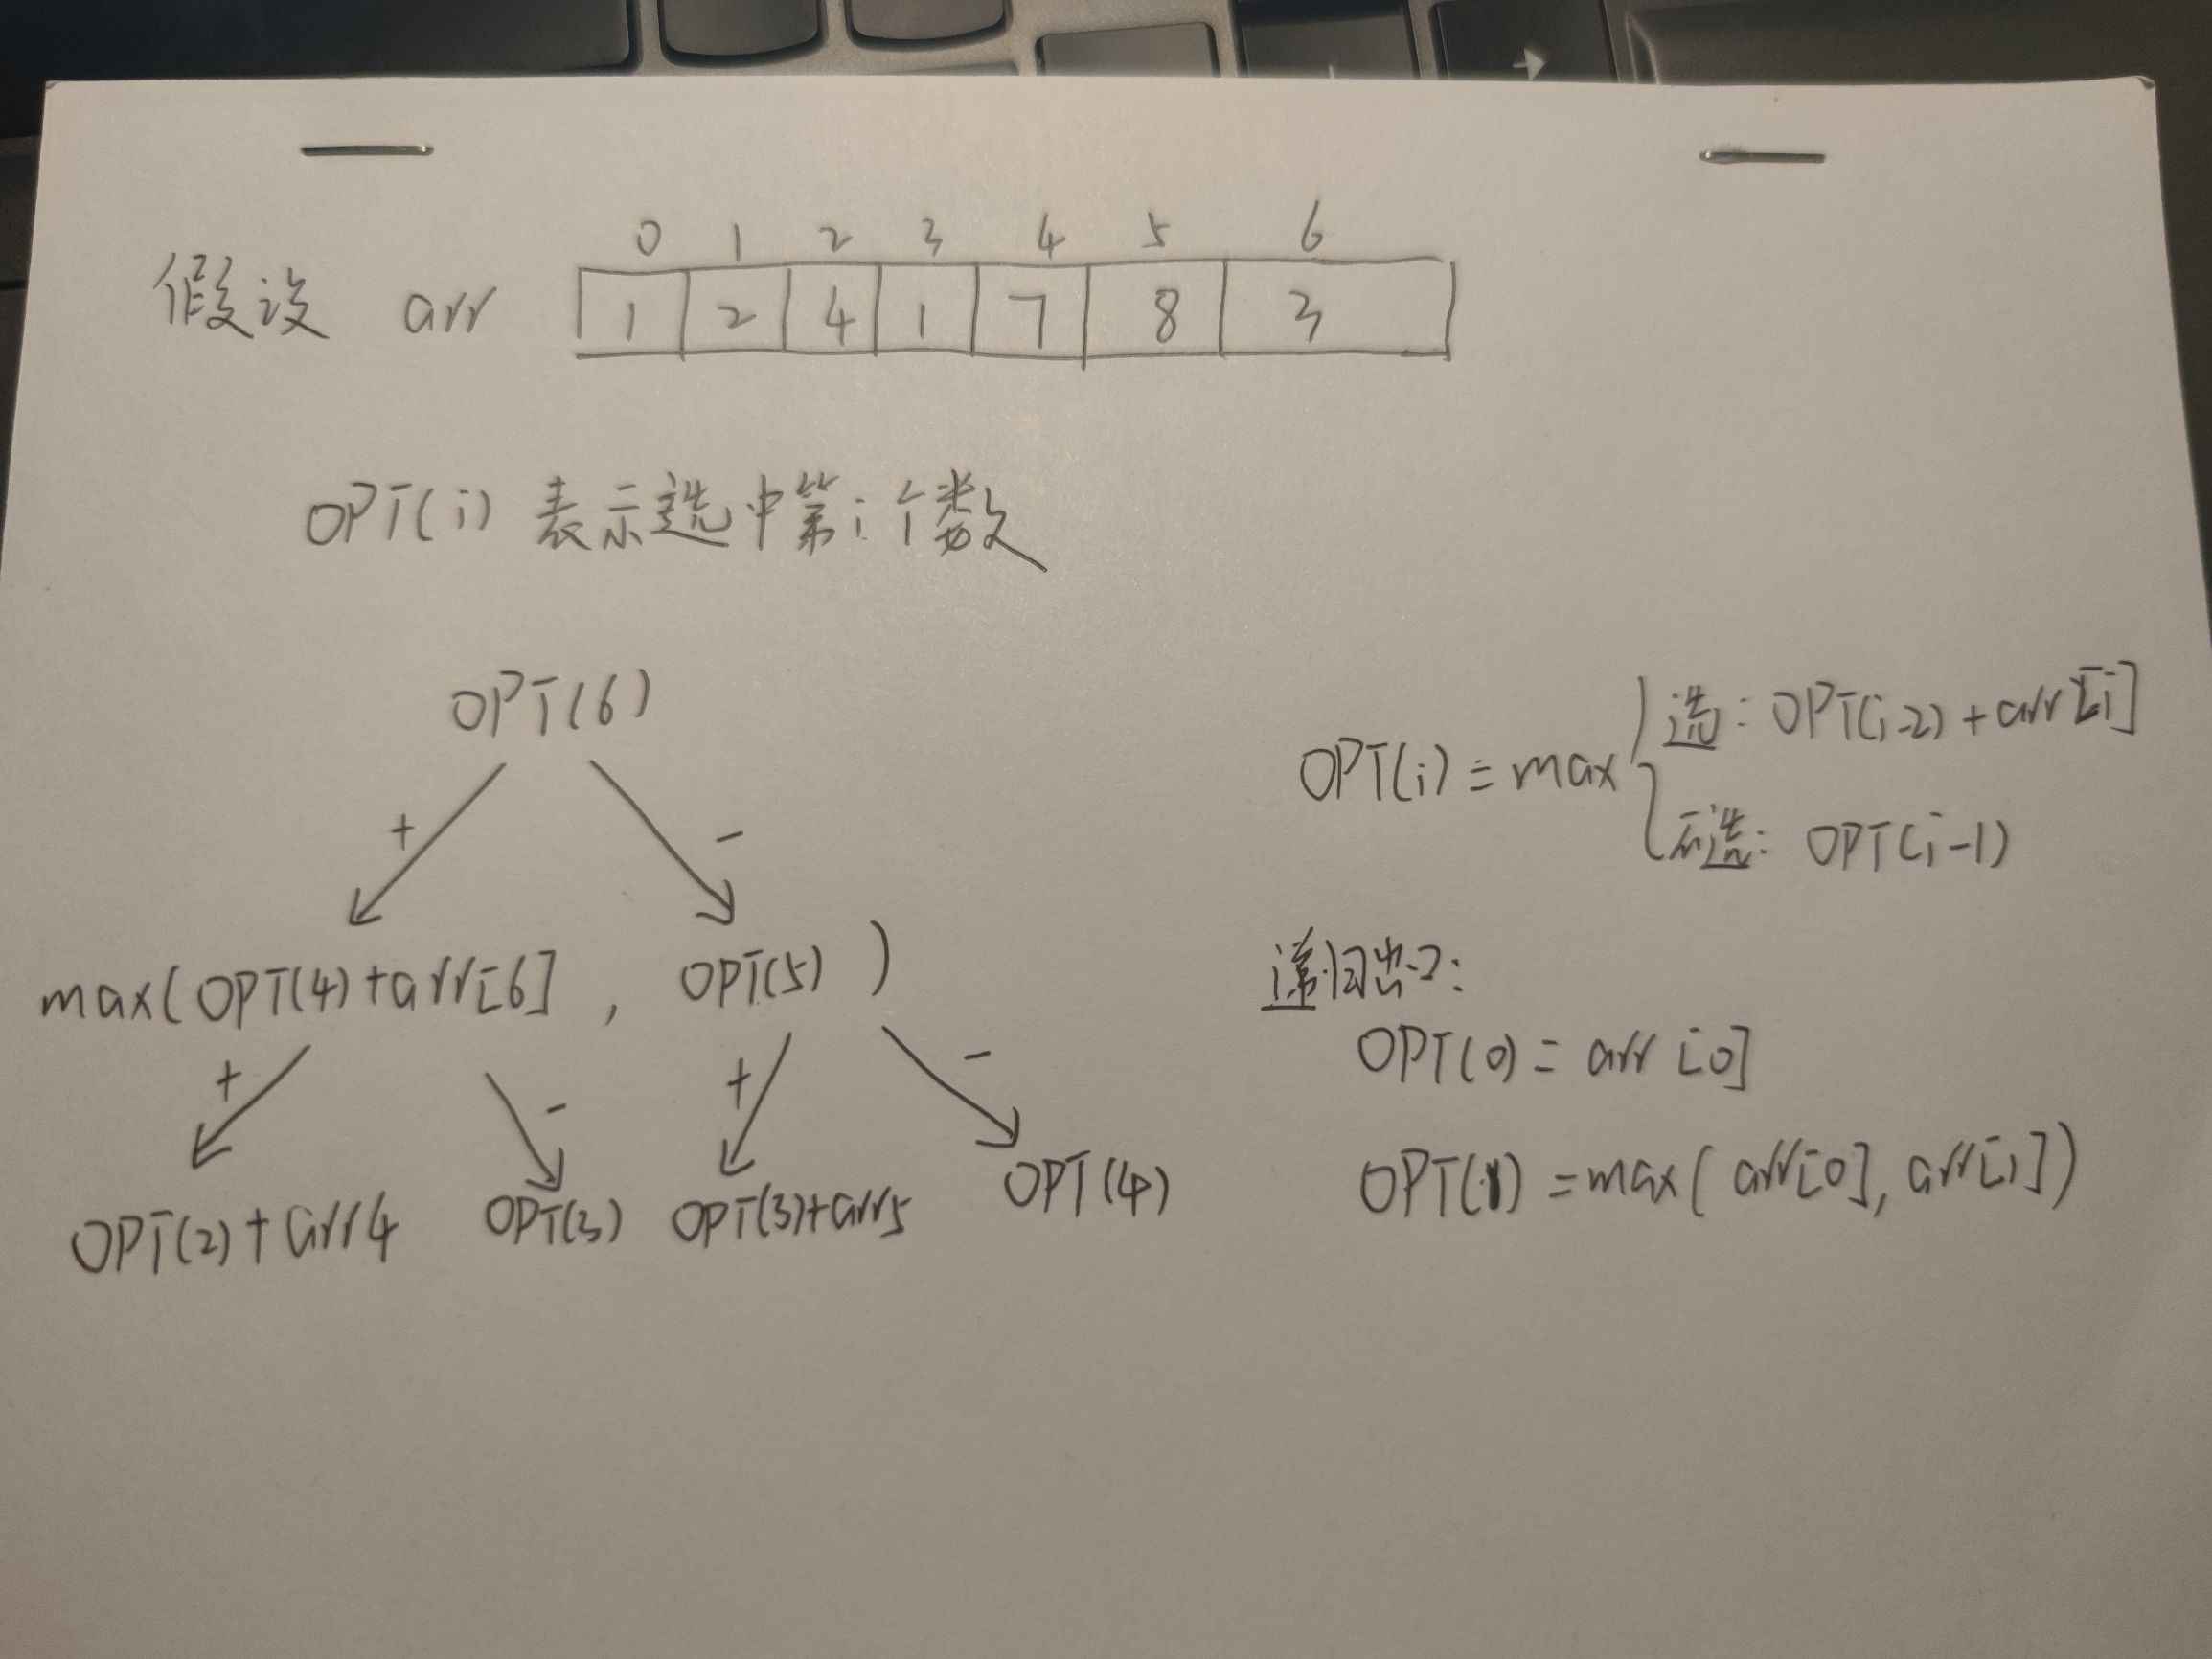 0 1 2 3 4 5 6
假设 arr 1 2 4 1 7 8 3
OPT(i) 表示选中第i个数
OPT(6)
+ -
max(OPT(4)+arr[6] , OPT(5) )
+ - + -
OPT(2)+arr4 OPT(3) OPT(3)+arr5 OPT(4)
OPT(i)=max { 选: OPT(i-2)+arr[i]
不选: OPT(i-1)
递归出口:
OPT(0)= arr[0]
OPT(1)=max( arr[0], arr[1])